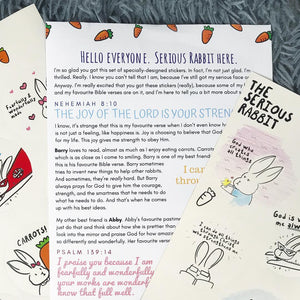 HELLO EVERYONE. SERIOUS RABBIT HERE.
I'm so glad you got this set of specially-designed stickers. In fact, I'm not just glad. I'm
thrilled. Really. I know you can't tell that I am, because I've still got my serious face on.
Anyway. I'm really excited that you got these stickers (really), because some of my
and my favourite Bible verses are on it, and I'm here to tell you a bit more about
NEHEMIAH 8:10
THE JOY OF THE LORD IS YOUR STREN
I know, it's strange that this is my favourite verse when I don't even
is not just a feeling, like happiness is. Joy is choosing to believe that God
for my life. This joy gives me strength to obey Him.
Barry loves to read, almost as much as I enjoy eating carrots. Carrots
which is as close as I come to smiling. Barry is one of my best friend
this is his favourite Bible verse. Barry sometimes
tries to invent new things to help other rabbits.
And sometimes, they're really hard. But Barry
always prays for God to give him the courage,
strength, and the smartness that he needs to do
what he needs to do. And that's when he comes
up with his best ideas.
I can
thro
My other best friend is Abby. Abby's favourite pastime
just do that and think about how she is prettier than
look into the mirror and praise God for how amazi
so differently and wonderfully. Her favourite verse
PSALM 139:14
I praise you because I am
fearfully and wonderfully
your works are wonderful
know that full well.
Fearfully &
wonderfully
made
CARROTS!
THE
SERIOUS
RABBIT
God who
all things
God is w
me alwa